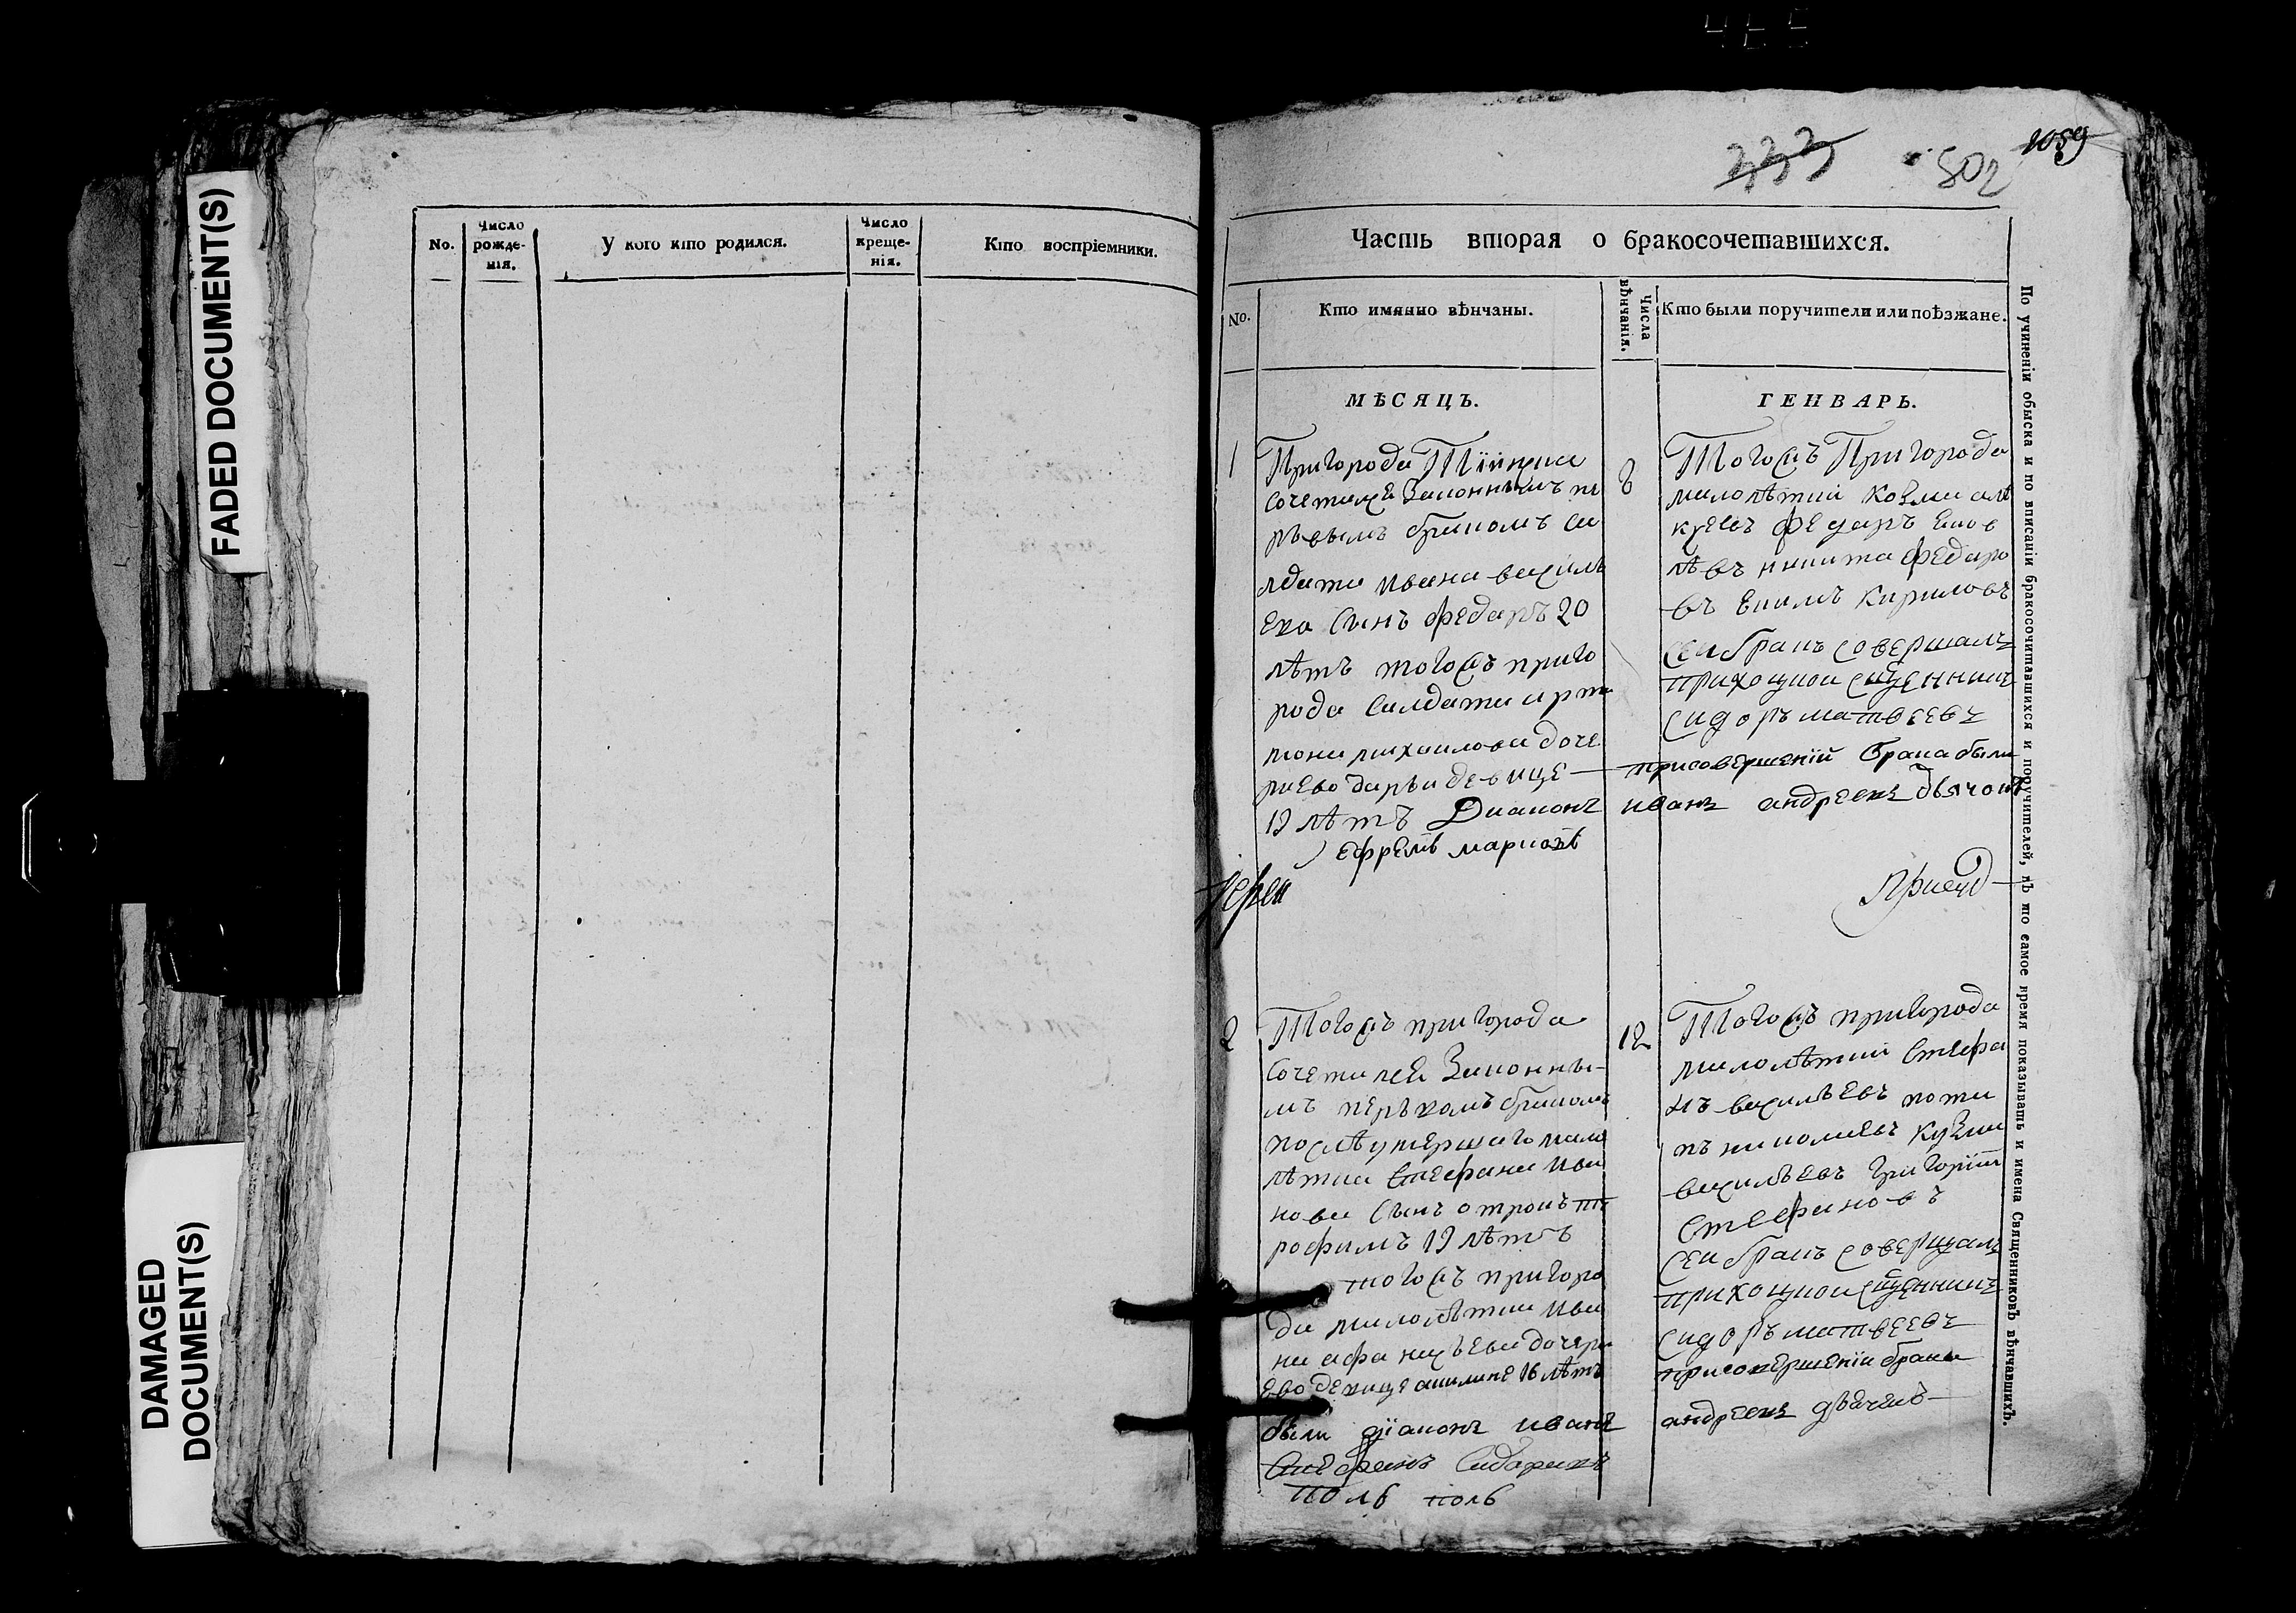 FADED DOCUMENT(S)
DAMAGED
DOCUMENT(S)
No.
Число
рожде-
нія.
У кого кто родился.
Число
креще-
нія.
Кто воспріемники.
333
802
1059
Часть вторая о бракосочетавшихся.
No.
Кто имянно вѣнчаны.
Числа
вѣнчанія.
Кто были поручители или поѣзжане.
МѢСЯЦЪ.
ГЕНВАРЬ.
1
Пригорода
сочетался законнымъ пе
рвымъ бракомъ са
лдата Ивана василь
ева сынъ федаръ 20
лѣтъ тогожъ приго
рода салдата арта
мона михаилова доче
рию ево дарьи девице
19 лѣтъ Диаконъ
ефремъ марковъ
8
Тогожъ Пригорода
малолѣтки козма
федаръ
никита федаро
въ екимъ кириловъ
сеи бракъ совершалъ
приходцкои сщенникъ
сидоръ матвеевъ
присовершении брака были
иванъ андреевъ дьячокъ
2
Тогожъ пригорода
сочетался законны-
мъ первымъ бракомъ
послѣ умершаго мало
лѣтка Стефана Ива
нова сынъ отрокъ тр
рофимъ 19 лѣтъ
тогожъ пригоро
да малолѣтка Ива
на афанасьева дочери
ево девице акилине 16 лѣтъ
были диаконъ иванъ
12
Тогожъ пригорода
малолѣтки Стефа
нъ васильевъ пота
пъ николаевъ кузма
васильевъ григории
Стефановъ
сеи бракъ совершалъ
приходцкои сщенникъ
сидоръ матвеевъ
присовершении брака
андреевъ дьячекъ
По учиненіи обыска и по вписаніи бракосочитавшихся и поручителей, въ то самое время показывать и имена Священниковъ вѣнчавшихъ.